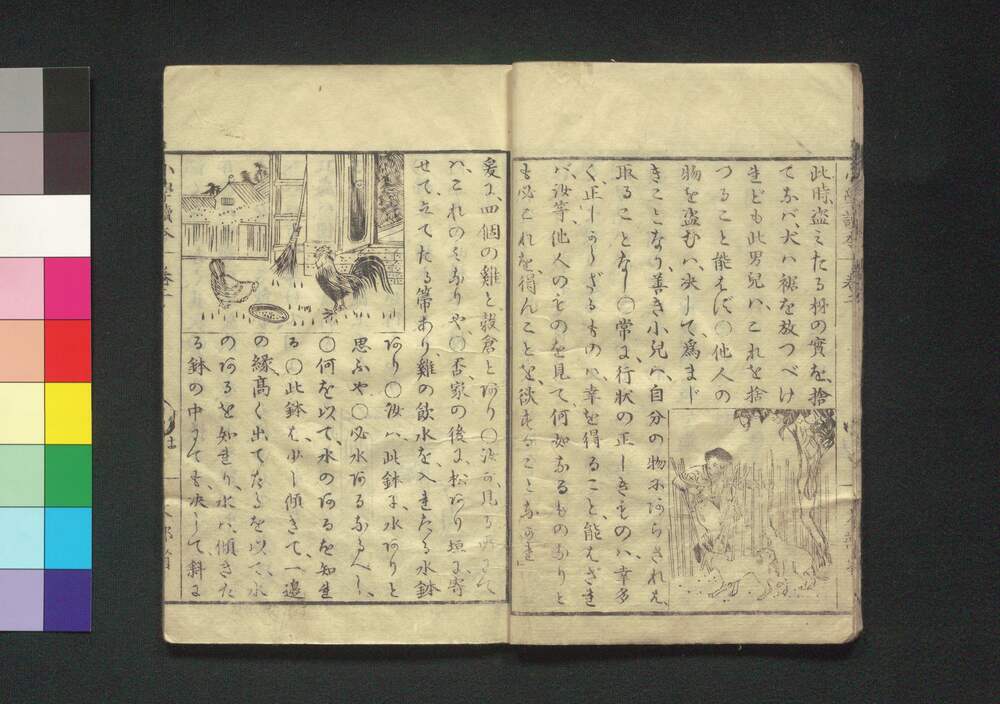 此時、盗ミたる柹の實を、捨
てなバ、犬ハ裾を放つべけ
れども此男兒ハ、これを捨
つること能はず○他人の
物を盗むハ、决して、爲まじ
きことなり善き小兒ハ、自分の物にあらされバ、
取ることなし○常に、行状の正しきものハ、幸多
く、正しからざるものハ、幸を得ること、能はざれ
バ、汝等、他人のものを見て、何如なるものなりと
も必これを、得んことを欲することなかれ」
爰に、四個の雞と穀倉とあり○汝が見る所にて
ハ、これのみなりや、○否家の後に、松あり垣に寄
せて、立てたる箒あり、雞の飲水を、入れたる水鉢
あり○汝ハ、此鉢に、水ありと
思ふや○必水あるなるべし、
○何を以て、水のあるを知れ
る○此鉢を、少し傾きて、一邉
の縁髙く出てたるを以て、水
のあるを知れり、水ハ、傾きた
る鉢の中にても、决して、斜に